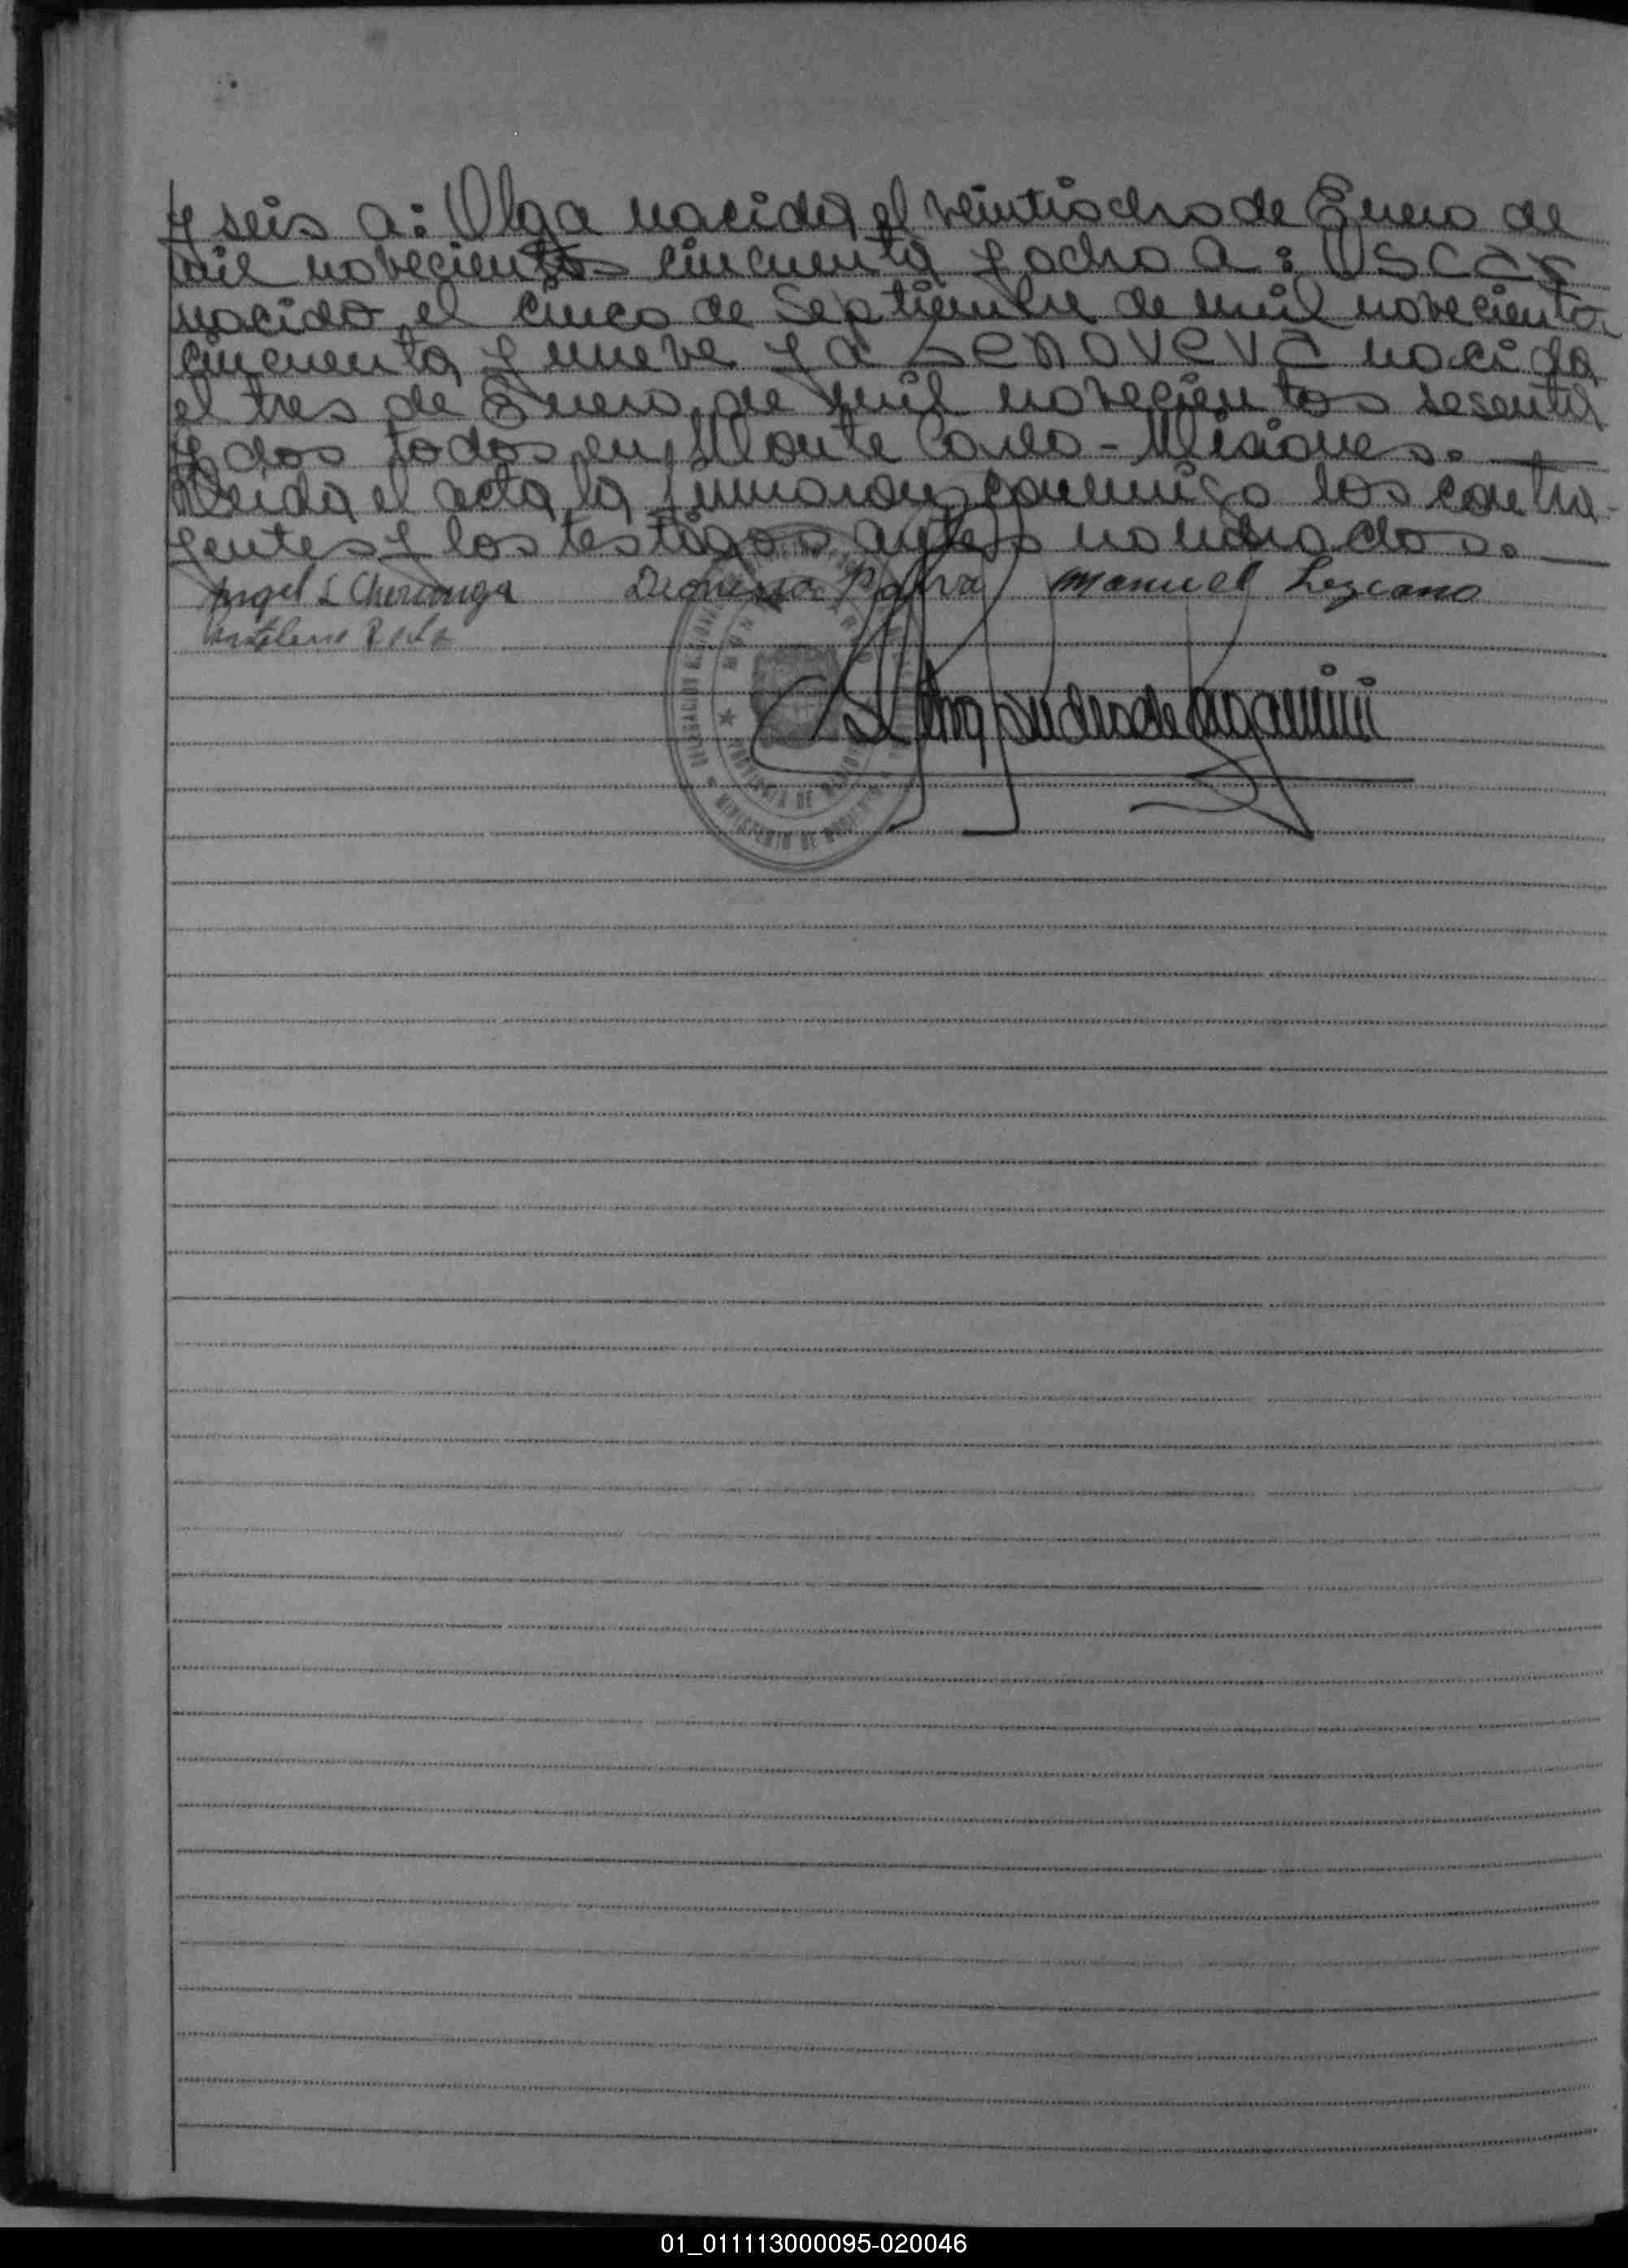 y seis a: Olga nacida el veintiocho de Enero de
mil novecientos cincuenta y ocho a: Oscar
nacido el cinco de Septiembre de mil novecientos
cincuenta y nueve y a Genoveva nacida
el tres de Enero de mil novecientos sesenta
y dos todos en Monte Carlo - Misiones. —
Leida el acta la firmaron conmigo los contra-
yentes y los testigos antes nombrados. —
Angel L Dionisia Manuel Lezcano
MINISTERIO DE
PROVINCIA DE
01_011113000095-020046